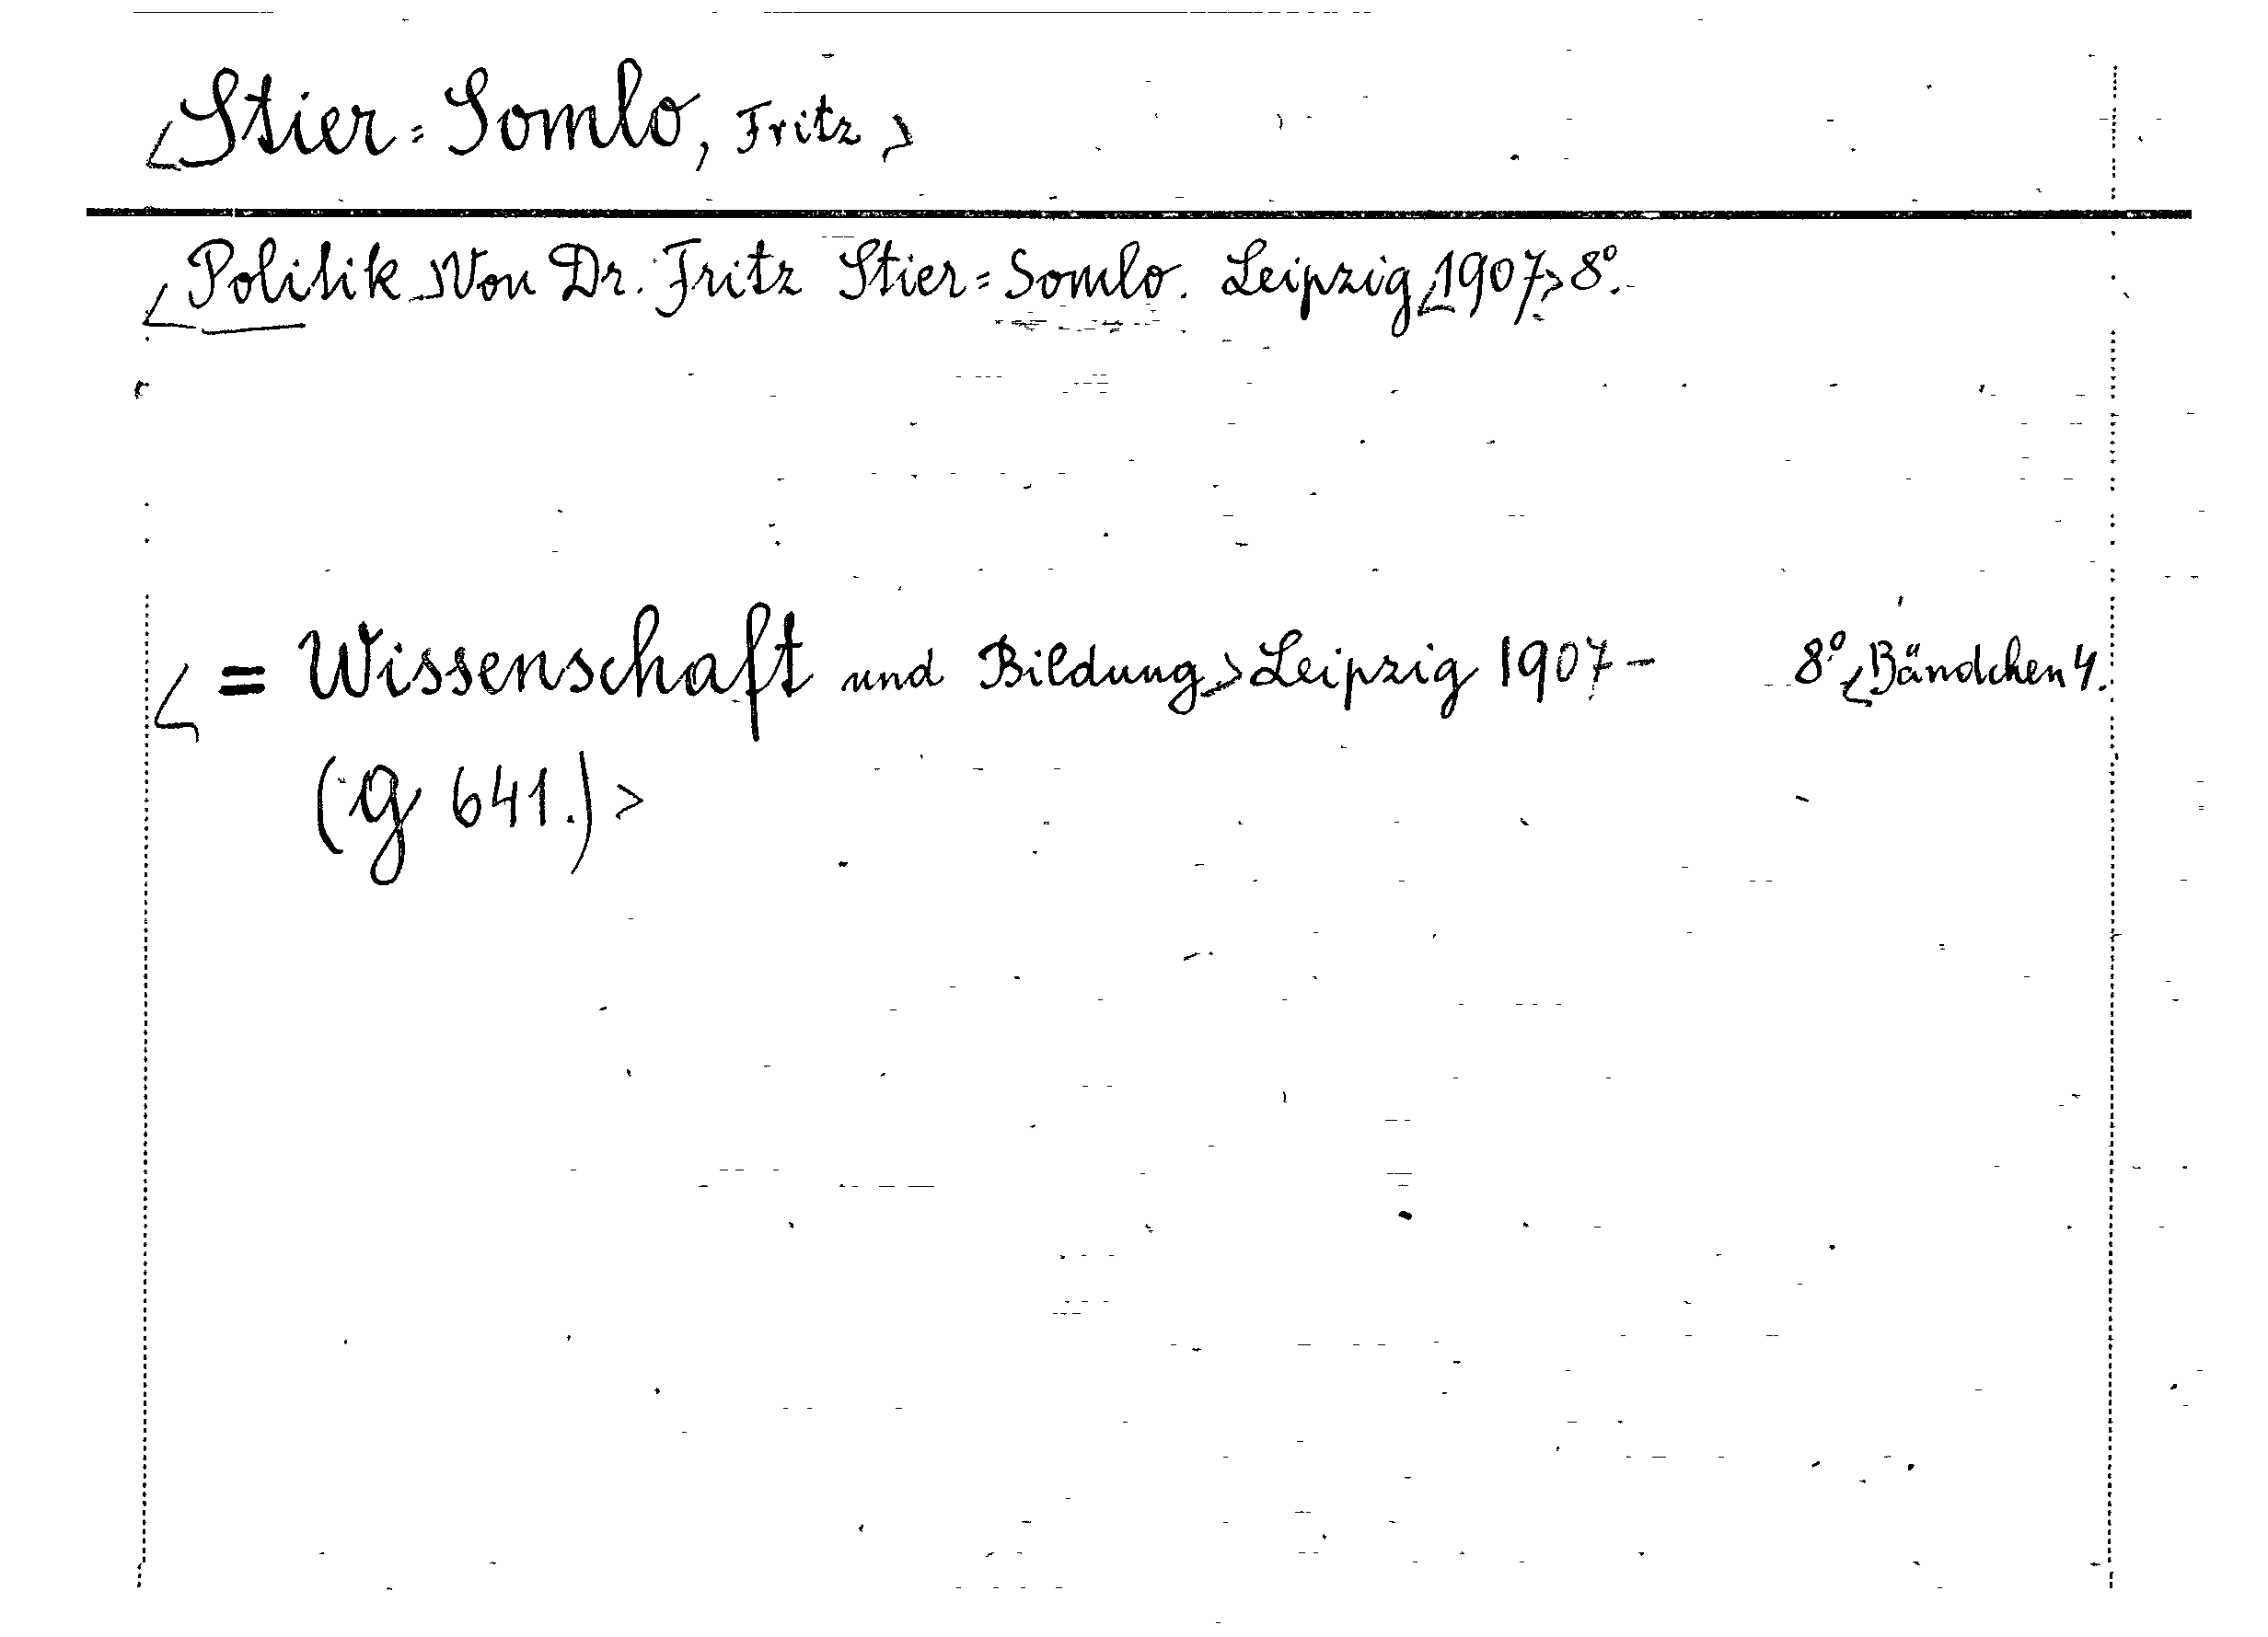 <Stier=Somlo, Fritz>
<Politik.>Von Dr. Fritz Stier=Somlo. Leipzig<1907>8°.
<= Wissenschaft und Bildung>Leipzig 1907- 8°.<Bändchen 4.
(g 641.)>